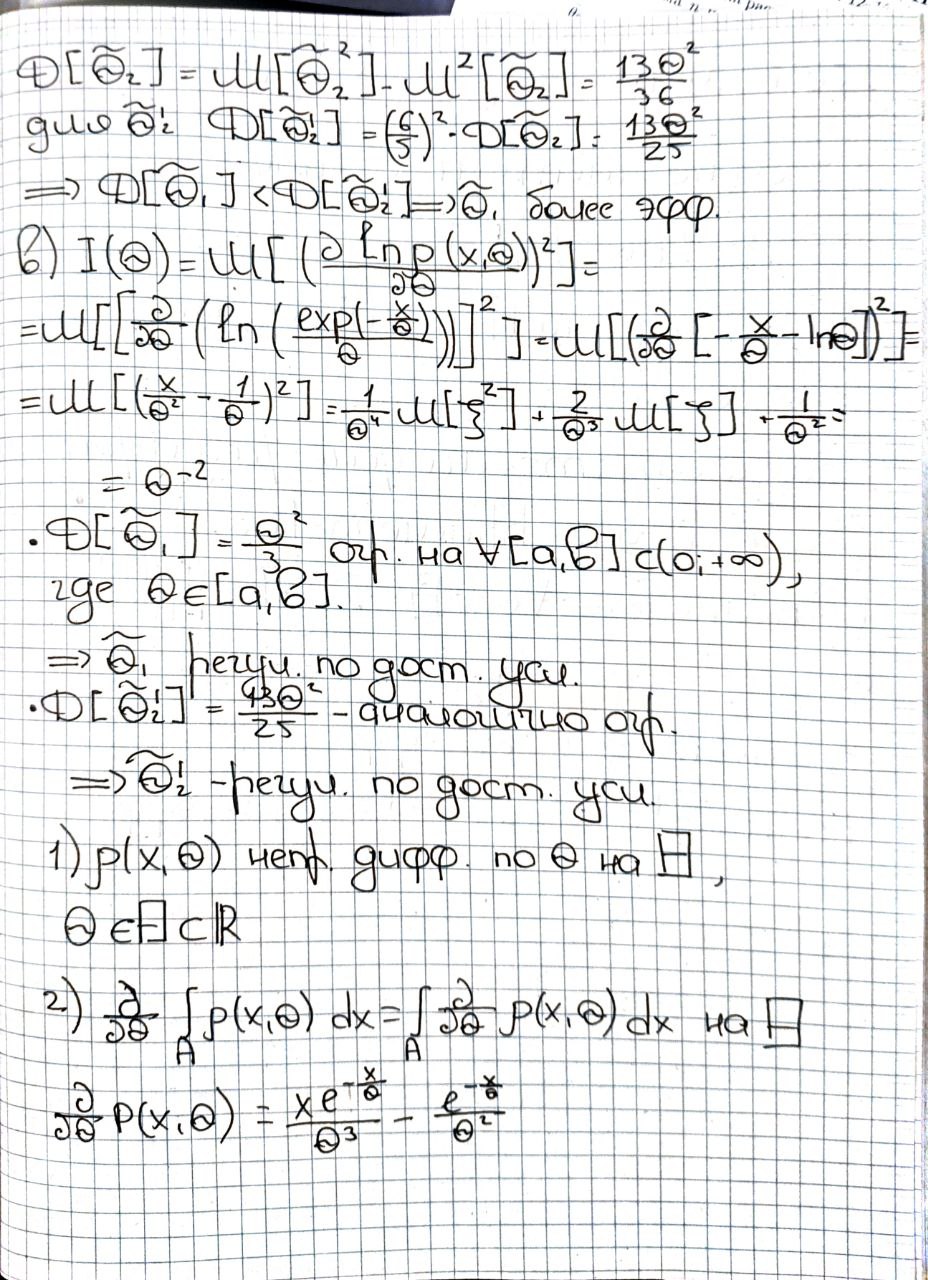 D[θ̃₂] = M[θ̃₂²] - M²[θ̃₂] = 13θ²/36
для θ̃₂': D[θ̃₂'] = (6/5)² · D[θ̃₂] = 13θ²/25
⟹ D[θ̃₁] < D[θ̃₂'] ⟹ θ̃₁ более эфф.
в) I(θ) = M[(∂ ln p(x,θ)/∂θ)²] =
= M[[∂/∂θ (ln (exp(-x/θ)/θ))]²] = M[(∂/∂θ [-x/θ - lnθ])²] =
= M[(x/θ² - 1/θ)²] = 1/θ⁴ M[ξ²] + 2/θ³ M[ξ] + 1/θ² =
= θ⁻²
· D[θ̃₁] = θ²/3 огр. на ∀[a,b] ⊂ (0;+∞),
где θ ∈ [a,b].
⟹ θ̃₁ регул. по дост. усл.
· D[θ̃₂'] = 13θ²/25 - аналогично огр.
⟹ θ̃₂' - регул. по дост. усл.
1) p(x,θ) непр. дифф. по θ на Θ,
θ ∈ Θ ⊂ ℝ
2) ∂/∂θ ∫_A p(x,θ) dx = ∫_A ∂/∂θ p(x,θ) dx на Θ
∂/∂θ p(x,θ) = xe^(-x/θ)/θ³ - e^(-x/θ)/θ²